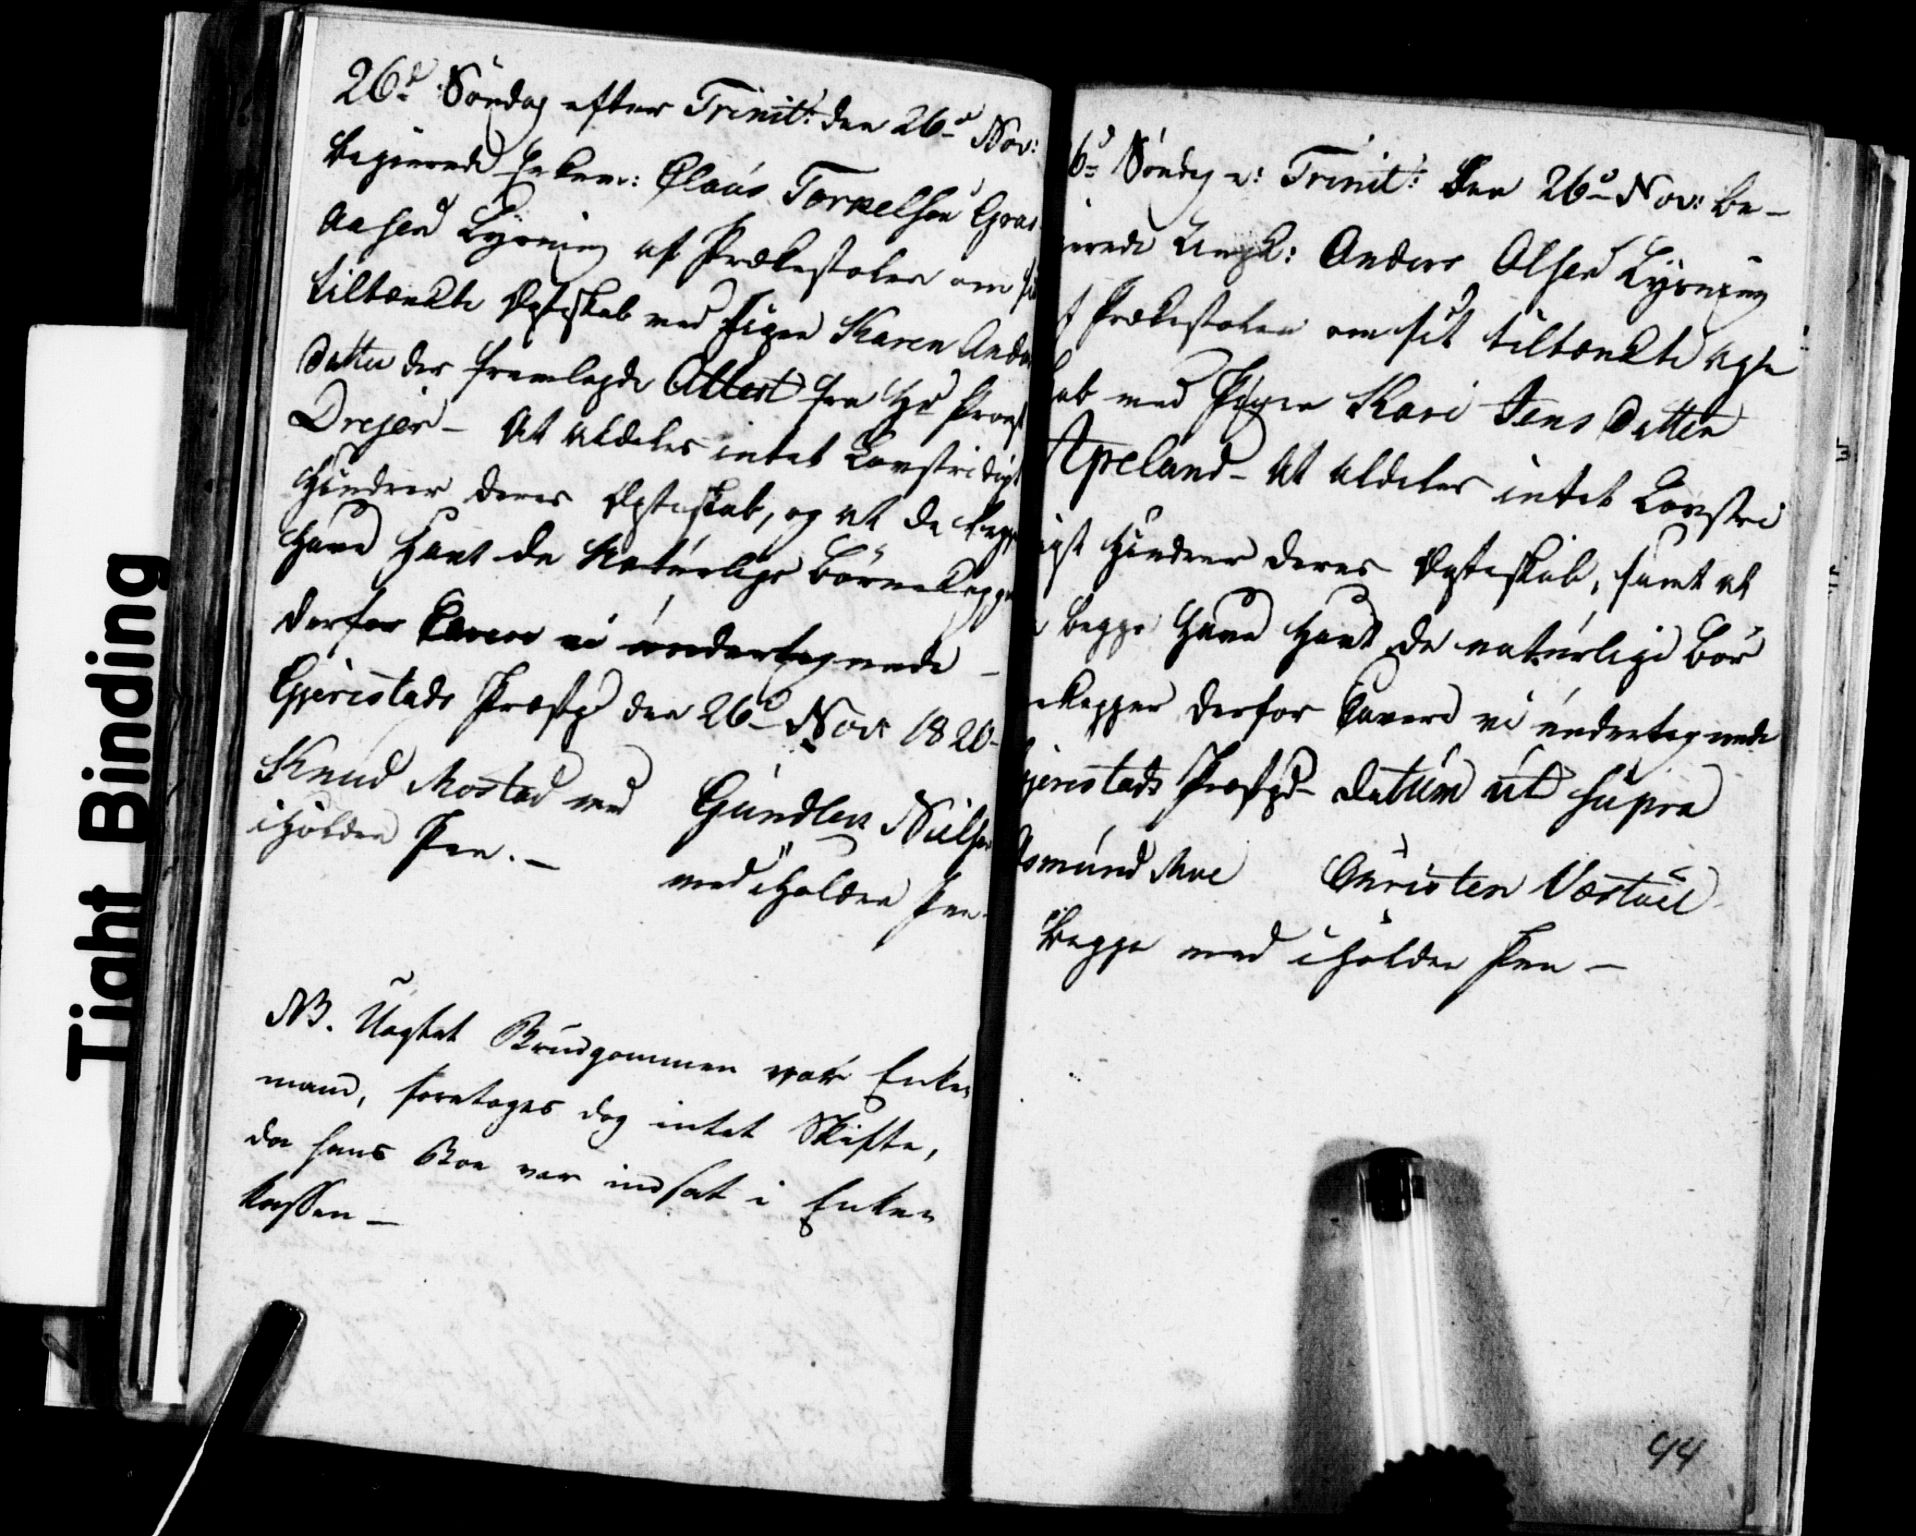 26d Søndag efter Trinit: den 26d Nov:
begierede Enkem: Olaus Torkelsen Graa
Aasen Lysning af Prækestolen om sit
tiltænkte Ægteskab med Pigen Karen Anders
datter der fremlagde Attest fra Hr Provst
Drejer – At aldeles intet Lovstridigt
Hindrer deres Ægteskab, og at de begge
Have Havt de Naturlige Børnekopper
derfor Cavere vi undertegnede –
Gjerestads Præstgd den 26d Nov: 1820 –
Knud Mostad med
iholden Pen. –
Gundlek Nielsen
med iholden Pen.
NB. Uagtet Brudgommen var Enke-
mand, foretoges dog intet Skifte,
da hans Boe var indsat i Enke-
kassen –
6d Søndag e: Trinit: Den 26d Nov: be-
gierede Ungk: Anders Olsen Lysning
f Prækestolen om sit tiltænkte Ægte
kab med Pigen Kari Jens Datter
Apeland – At aldeles intet Lovstri
igt Hindrer deres Ægteskab, samt at
e begge Have Havt de naturlige Bør
ekopper derfor Cavere vi undertegnede
Gjerestads Præstgd – datum ut supra
Osmund Moe Christen Væstøel
Begge med iholden Pen –
94
Tight Binding